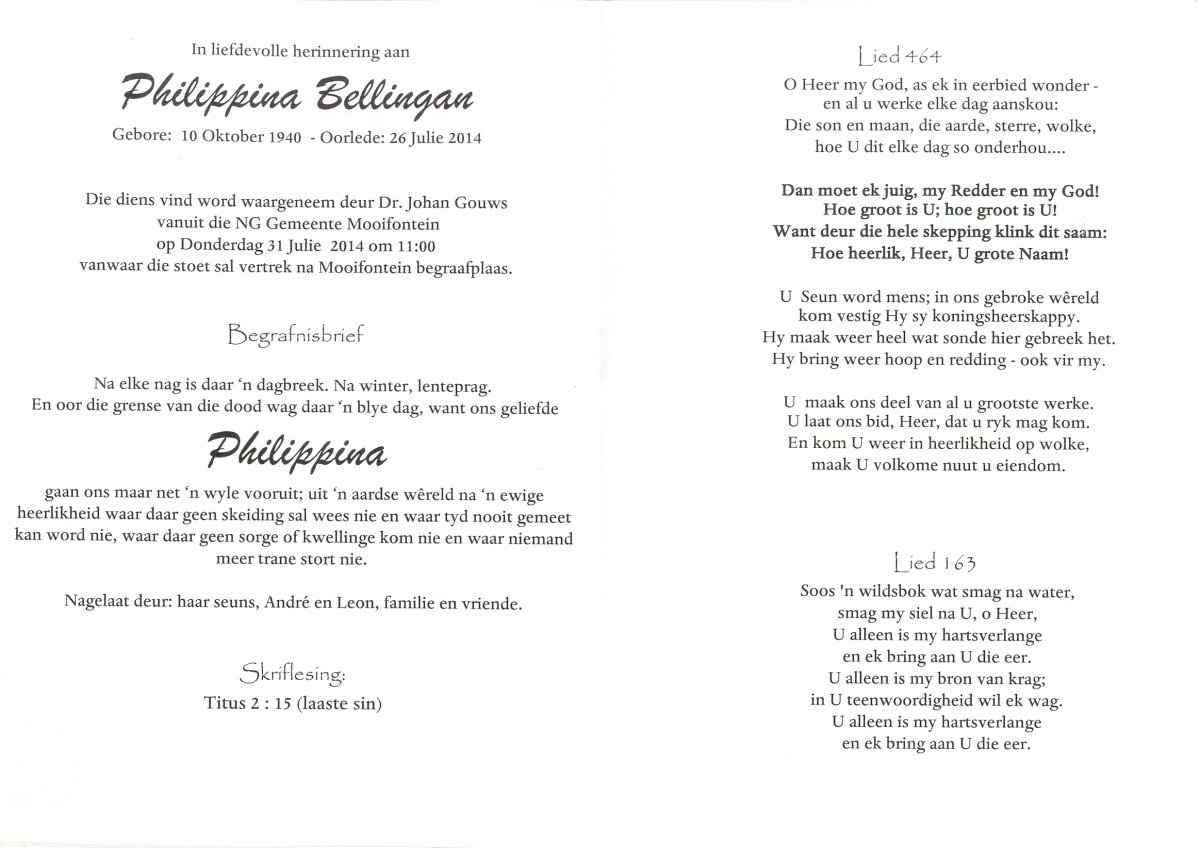 In liefdevolle herinnering aan
Philippina Bellingan
Gebore: 10 Oktober 1940 - Oorlede: 26 Julie 2014
Die diens vind word waargeneem deur Dr. Johan Gouws
vanuit die NG Gemeente Mooifontein
op Donderdag 31 Julie 2014 om 11:00
vanwaar die stoet sal vertrek na Mooifontein begraafplaas.
Begrafnisbrief
Na elke nag is daar ‘n dagbreek. Na winter, lenteprag.
En oor die grense van die dood wag daar ‘n blye dag, want ons geliefde
Philippina
gaan ons maar net ‘n wyle vooruit; uit ‘n aardse wêreld na ‘n ewige
heerlikheid waar daar geen skeiding sal wees nie en waar tyd nooit gemeet
kan word nie, waar daar geen sorge of kwellinge kom nie en waar niemand
meer trane stort nie.
Nagelaat deur: haar seuns, André en Leon, familie en vriende.
Skriflesing:
Titus 2 : 15 (laaste sin)
Lied 464
O Heer my God, as ek in eerbied wonder -
en al u werke elke dag aanskou:
Die son en maan, die aarde, sterre, wolke,
hoe U dit elke dag so onderhou....
Dan moet ek juig, my Redder en my God!
Hoe groot is U; hoe groot is U!
Want deur die hele skepping klink dit saam:
Hoe heerlik, Heer, U grote Naam!
U Seun word mens; in ons gebroke wêreld
kom vestig Hy sy koningsheerskappy.
Hy maak weer heel wat sonde hier gebreek het.
Hy bring weer hoop en redding - ook vir my.
U maak ons deel van al u grootste werke.
U laat ons bid, Heer, dat u ryk mag kom.
En kom U weer in heerlikheid op wolke,
maak U volkome nuut u eiendom.
Lied 163
Soos 'n wildsbok wat smag na water,
smag my siel na U, o Heer,
U alleen is my hartsverlange
en ek bring aan U die eer.
U alleen is my bron van krag;
in U teenwoordigheid wil ek wag.
U alleen is my hartsverlange
en ek bring aan U die eer.